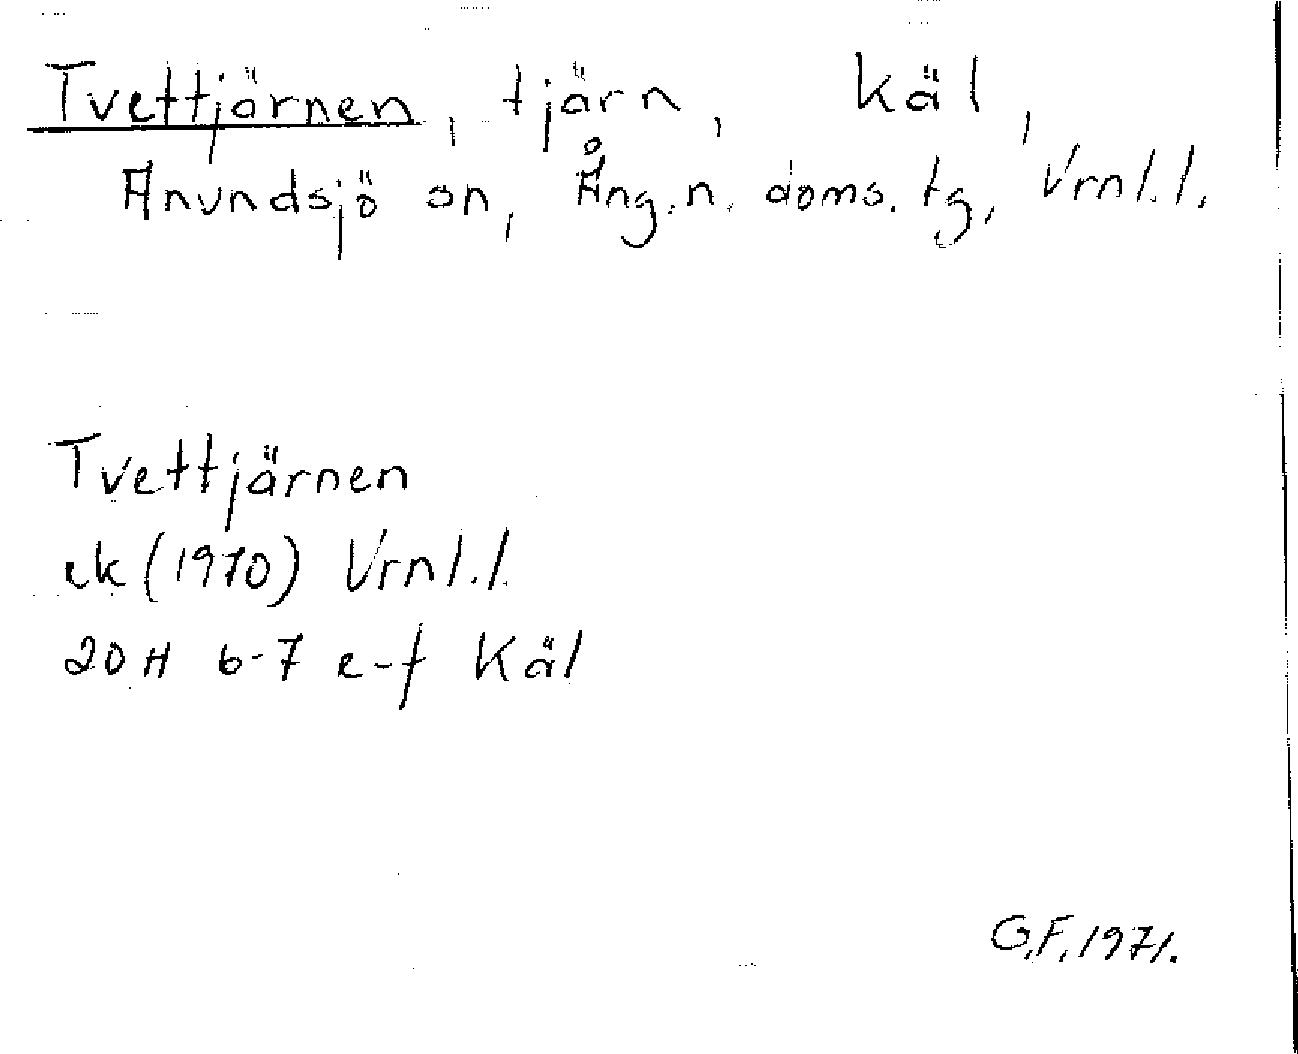 Tvettjärnen, tjärn, Käl,
Anundsjö sn, Ång.n. doms. tg, Vrnl.l.
Tvettjärnen
ek (1970) Vrnl.l.
20 H 6-7 e-f Käl
G.F. 1971.